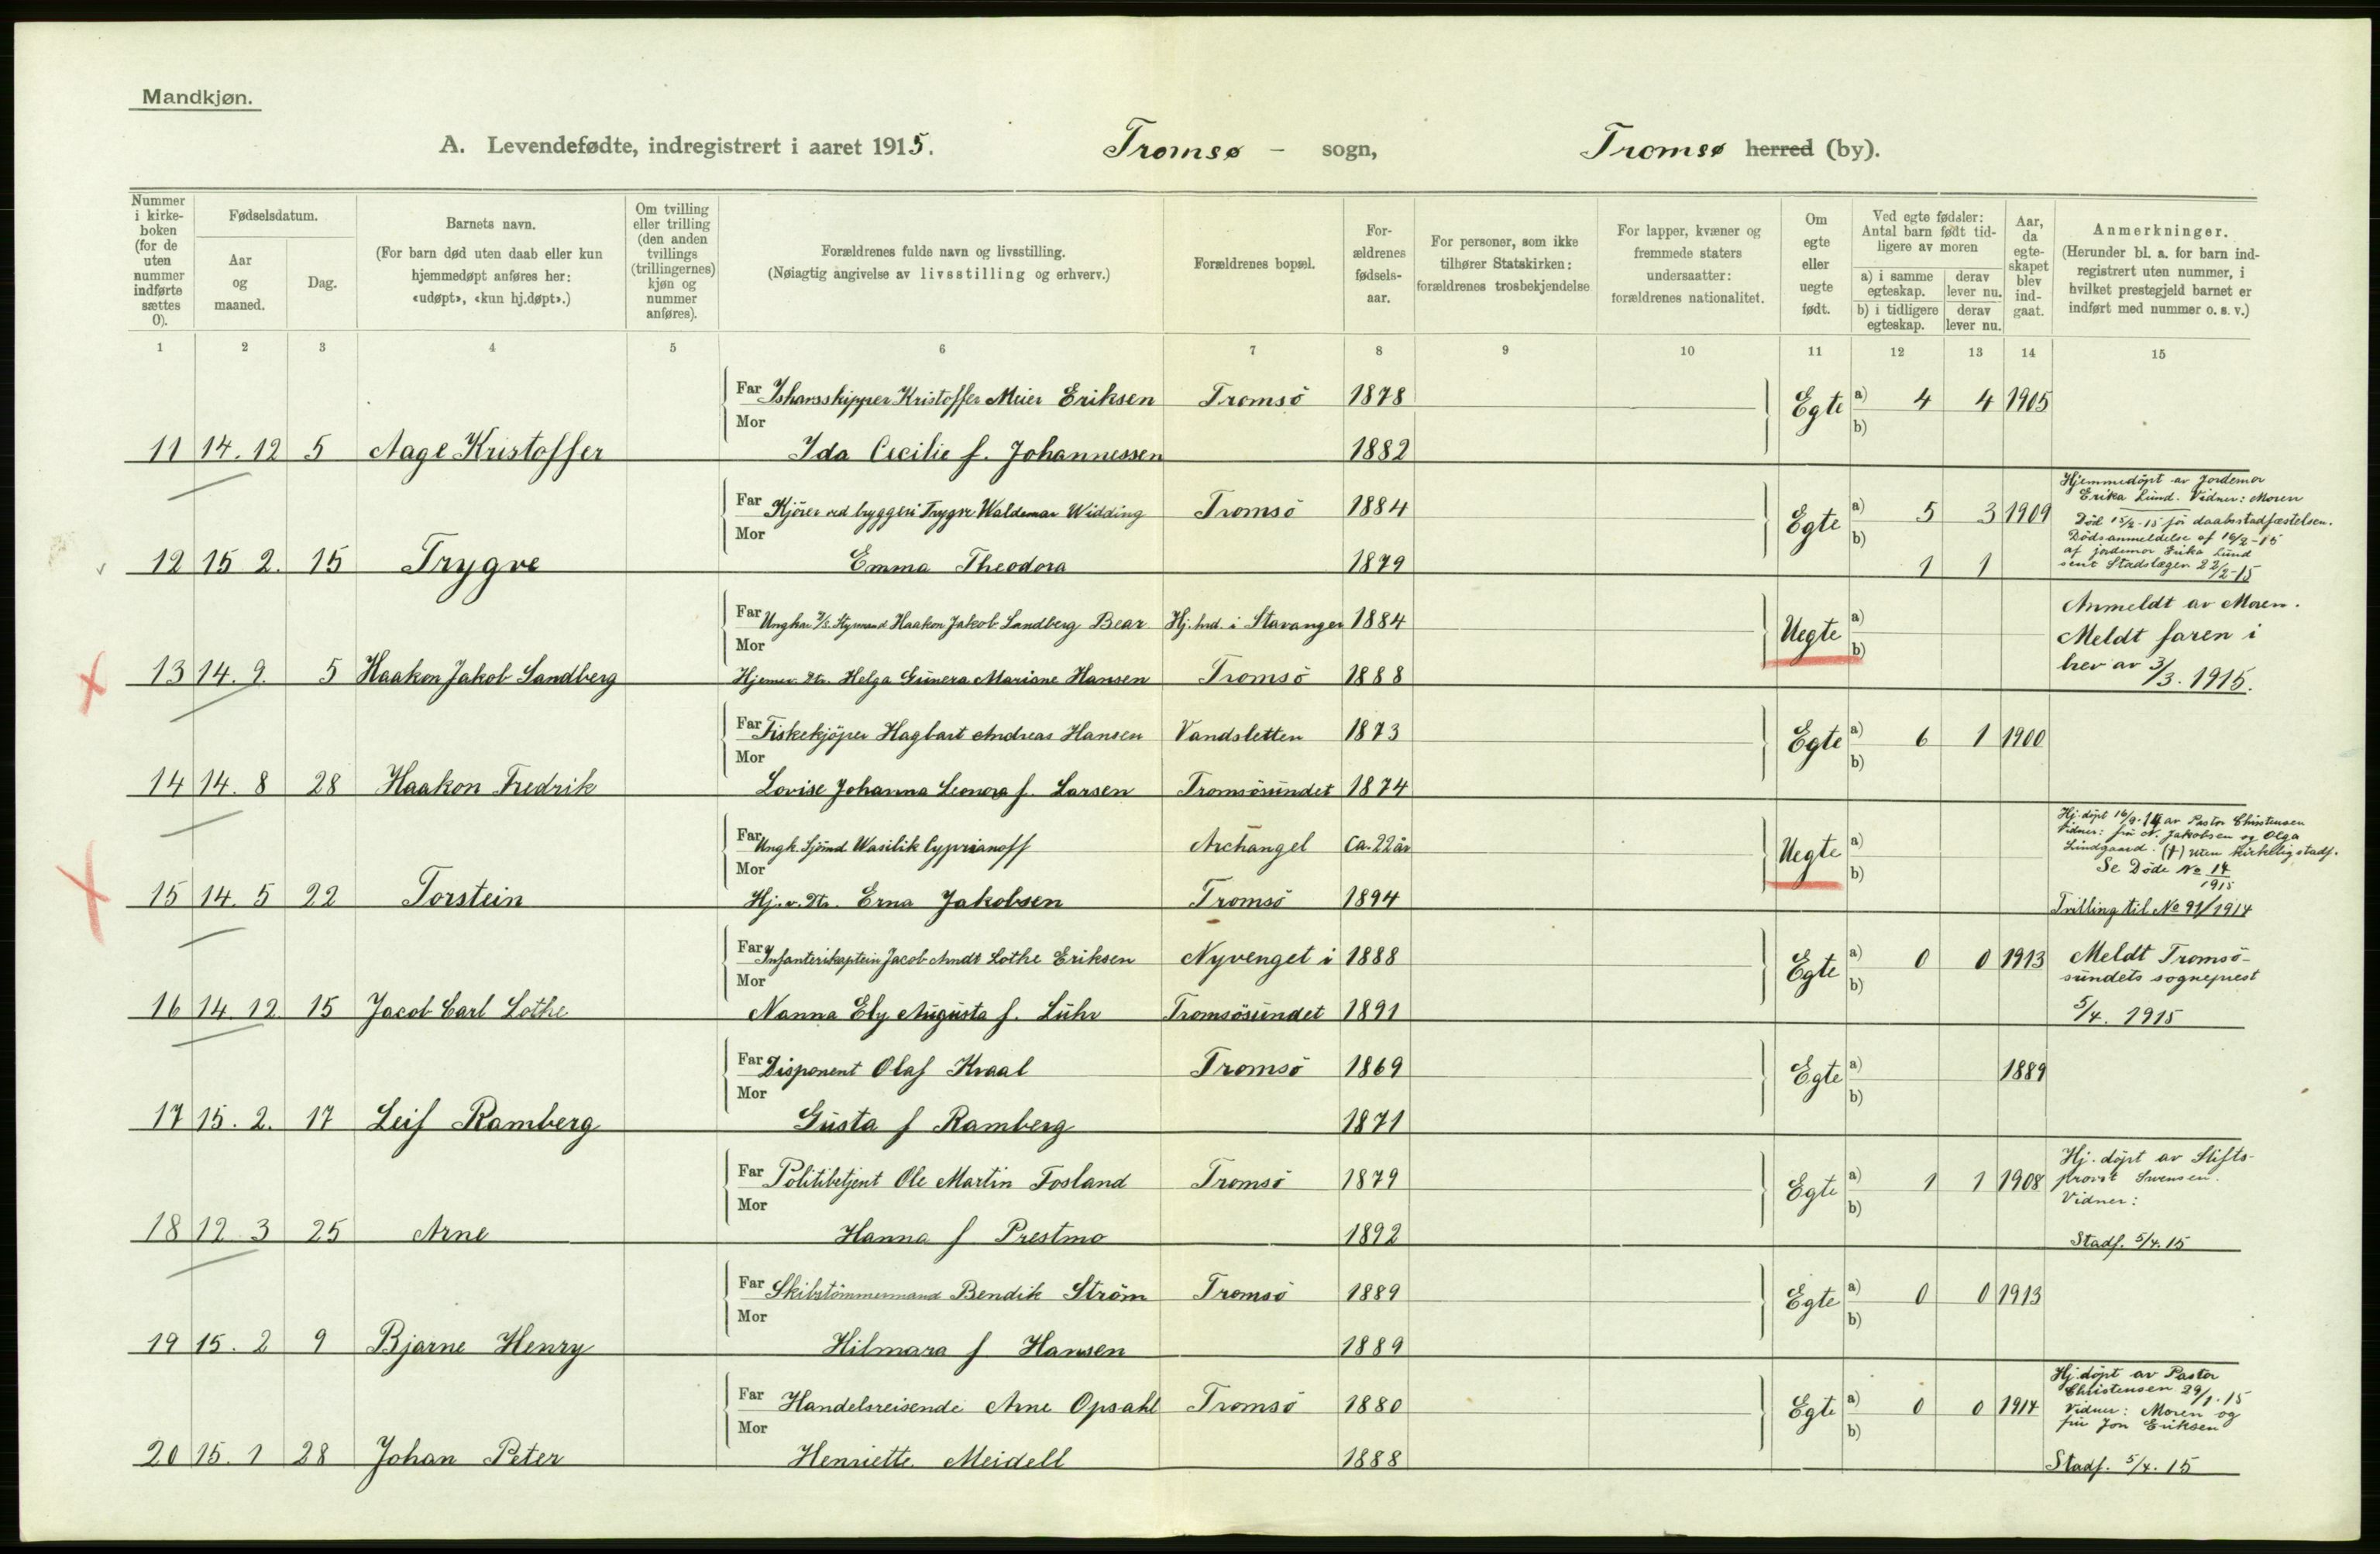 Mandkjøn.
A. Levendefødte, indregistrert i aaret 1915. Tromsø - sogn, Tromsø herred (by).
Nummer i kirkeboken (for de uten nummer indførte sættes 0).
Fødselsdatum.
Aar og maaned.
Dag.
Barnets navn.
(For barn død uten daab eller kun hjemmedøpt anføres her: «udøpt», «kun hj.døpt».)
Om tvilling eller trilling (den anden tvillings (trillingernes) kjøn og nummer anføres).
Forældrenes fulde navn og livsstilling.
(Nøiagtig angivelse av livsstilling og erhverv.)
Forældrenes bopæl.
Forældrenes fødselsaar.
For personer, som ikke tilhører Statskirken: forældrenes trosbekjendelse
For lapper, kvæner og fremmede staters undersaatter: forældrenes nationalitet.
Om egte eller uegte født.
Ved egte fødsler: Antal barn født tidligere av moren
a) i samme egteskap. derav lever nu.
b) i tidligere egteskap. derav lever nu.
Aar, da egteskapet blev indgaat.
Anmerkninger.
(Herunder bl. a. for barn indregistrert uten nummer, i hvilket prestegjeld barnet er indført med nummer o. s. v.)
1 2 3 4 5 6 7 8 9 10 11 12 13 14 15
Far Ishavsskipper Kristoffer Meier Eriksen Tromsö 1878 Egte a) 4 4 1905
Mor b)
11 14. 12 5 Aage Kristoffer Ida Cecilie f. Johannessen 1882
Hjemmedöpt av Jordemor
Erika Lund. Vidner: Moren
Far Kjörer ved byggeri Trygve Waldemar Widding Tromsö 1884 Egte a) 5 3 1909
Död 15/2-15 för daabsstadfæstelsen.
Mor b)
Dödsanmeldelse af 16/2-15
af jordemor Erika Lund
sent Stadslægen 22/2-15
12 15 2. 15 Trygve Emma Theodora 1879 1 1
Far Ungkar Styrmand Haakon Jakob Sandberg Bear Hj. hrd. i Stavanger 1884 Uegte a) Anmeldt av Moren.
Mor b) Meldt faren i
brev av 3/3. 1915.
13 14. 9. 5 Haakon Jakob Sandberg Hjemmev. Dtr. Helga Gunera Mariane Hansen Tromsö 1888
Far Fiskekjöper Hagbart Andreas Hansen Vandsletten 1873 Egte a) 6 1 1900
Mor b)
14 14. 8 28 Haakon Fredrik Lovise Johanna Leonora f. Larsen Tromsösundet 1874
Hj. döpt 16/9.14 av Pastor Christensen
Vidner: fru N. Jakobsen og Olga
Far Ungk. Sjömd Wasilik Cyprianoff Archangel ca. 22 år Uegte a)
Lindgaard. (†) uten kirkelig stadf.
Mor b) Se Döde No 14/1915
15 14. 5 22 Torstein Hj. v. Dtr. Erna Jakobsen Tromsö 1894 Tvilling til No 91/1914
Far Infanterikaptein Jacob Arndt Lothe Eriksen Nyvenget i 1888 Egte a) 0 0 1913 Meldt Tromsö-
Mor b) sundets sogneprest
16 14 12. 15 Jacob Carl Lothe Nanna Ely Augusta f. Lühr Tromsösundet 1891 5/4. 1915
Far Disponent Olaf Kraal Tromsö 1869 Egte a) 1889
Mor b)
17 15. 2. 17 Leif Ramberg Gusta f Ramberg 1871
Hj. döpt av Stifts-
Far Politibetjent Ole Martin Fosland Tromsö 1879 Egte a) 1 1 1908 provst Swensen.
Mor b) Vidner:
18 12 3 25 Arne Hanna f Prestmo 1892 Stadf. 5/4. 15
Far Skibstömmermand Bendik Ström Tromsö 1889 Egte a) 0 0 1913
Mor b)
19 15. 2 9 Bjarne Henry Hilmara f Hansen 1889
Hj. döpt av Pastor
Christensen 29/1. 15
Far Handelsreisende Arne Opsahl Tromsö 1880 Egte a) 0 0 1914 Vidner: Moren og
Mor b) fru Jon Eriksen
20 15. 1 28 Johan Peter Henriette Meidell 1888 Stadf. 5/4. 15